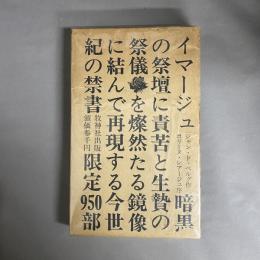 イマージュ
ジャン・ド・ベルグ作
ポリーヌ・レアージュ序
暗黒
の祭壇に責苦と生贄の
祭儀を燦然たる鏡像
に結んで再現する今世
紀の禁書
牧神社出版
頒価参千円
限定950部